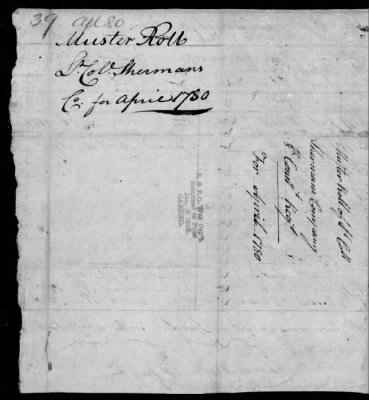 39 apl 80
Muster Roll
Lt. Col. Shermans
Co. for April 1780
Muster Roll of Lt Coll
Shermans Company
8th Conn. Regt
For April 1780
R. & P. O. War Dept.